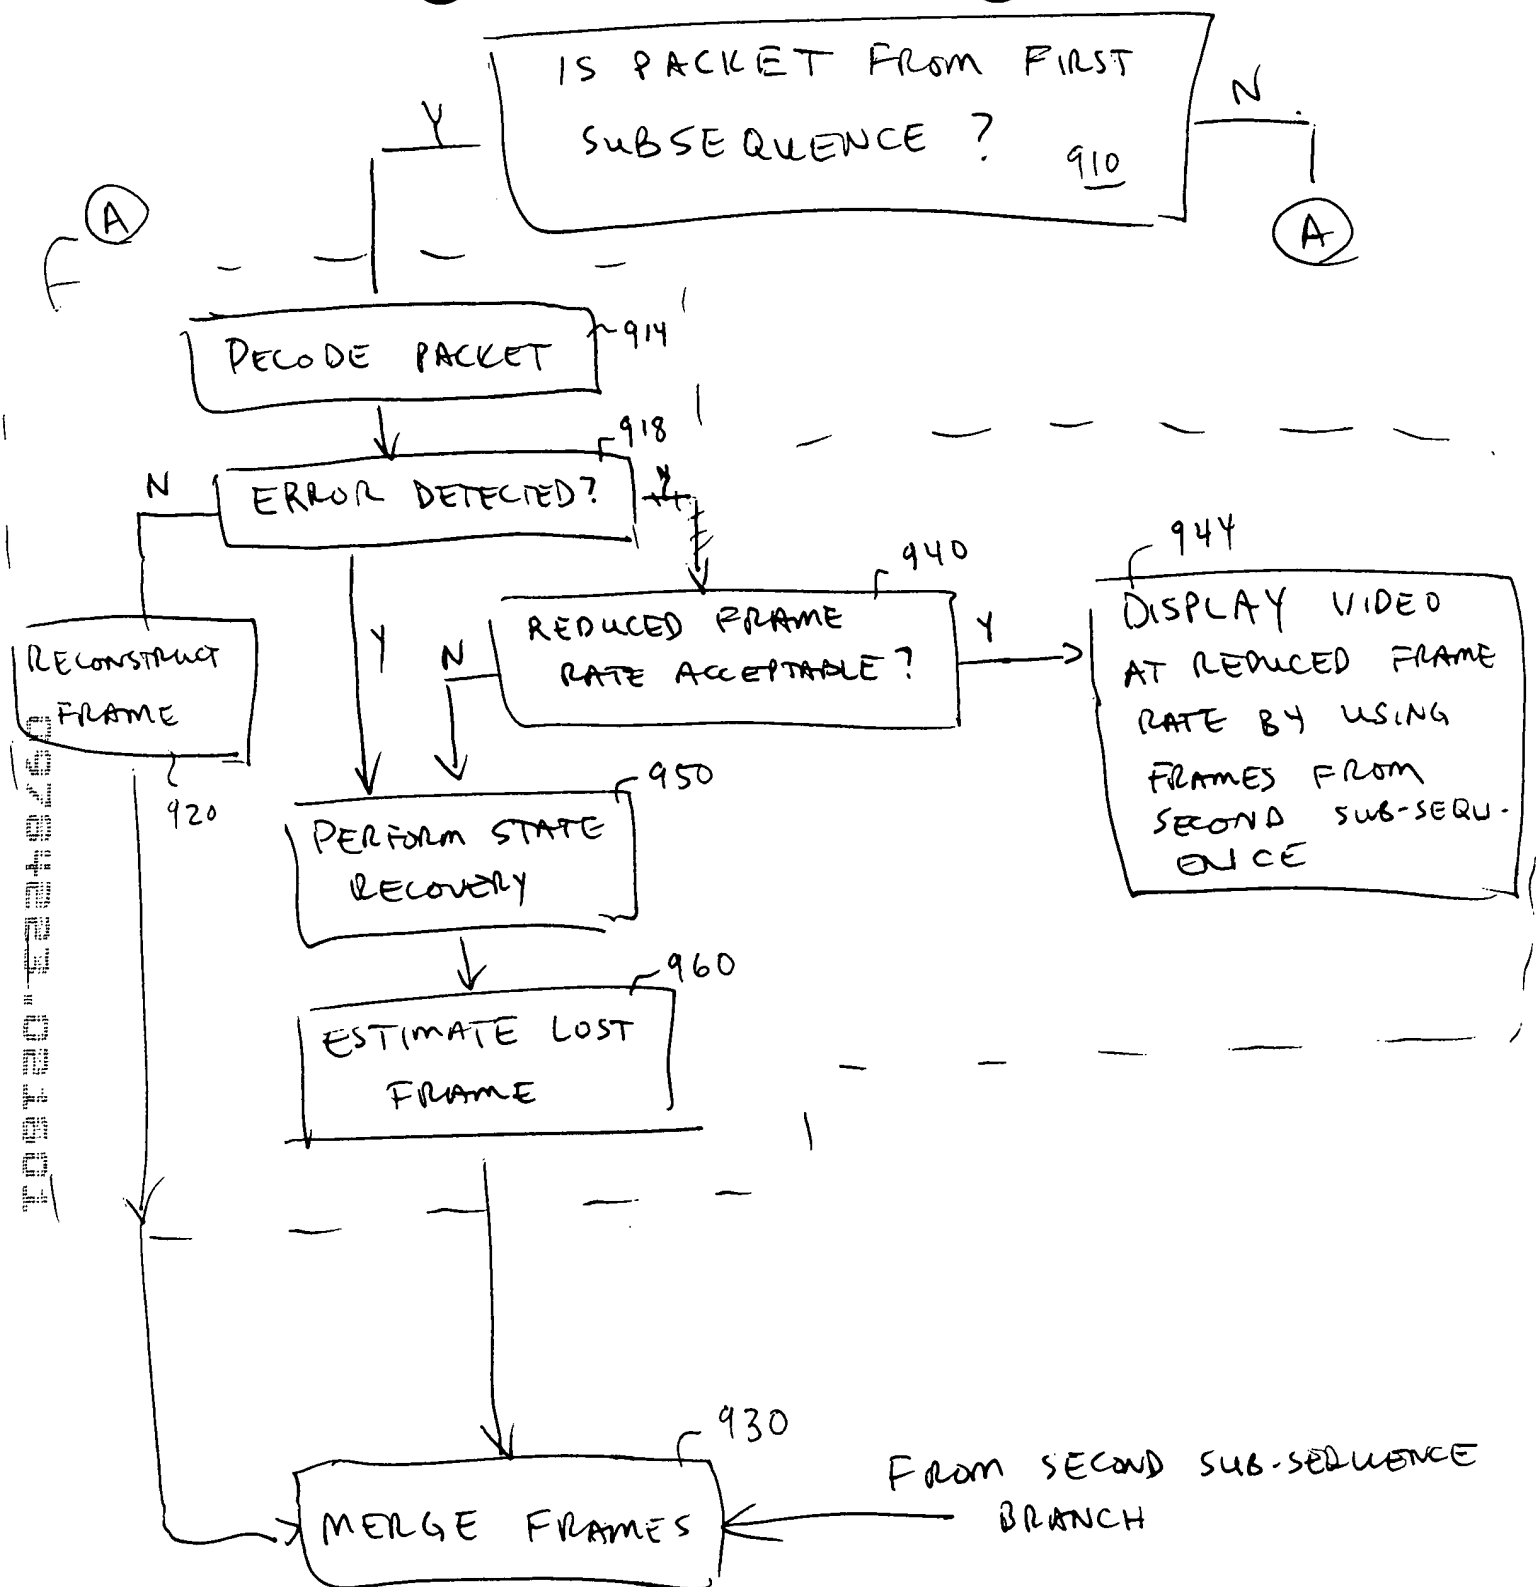 IS PACKET FROM FIRST
SUBSEQUENCE ?
910
Y
N
A
A
DECODE PACKET
914
918
ERROR DETECTED?
N
Y
Y
940
REDUCED FRAME
RATE ACCEPTABLE ?
N
Y
944
DISPLAY VIDEO
AT REDUCED FRAME
RATE BY USING
FRAMES FROM
SECOND SUB-SEQU-
ENCE
RECONSTRUCT
FRAME
920
950
PERFORM STATE
RECOVERY
960
ESTIMATE LOST
FRAME
930
MERGE FRAMES
FROM SECOND SUB-SEQUENCE
BRANCH
09784223.021501